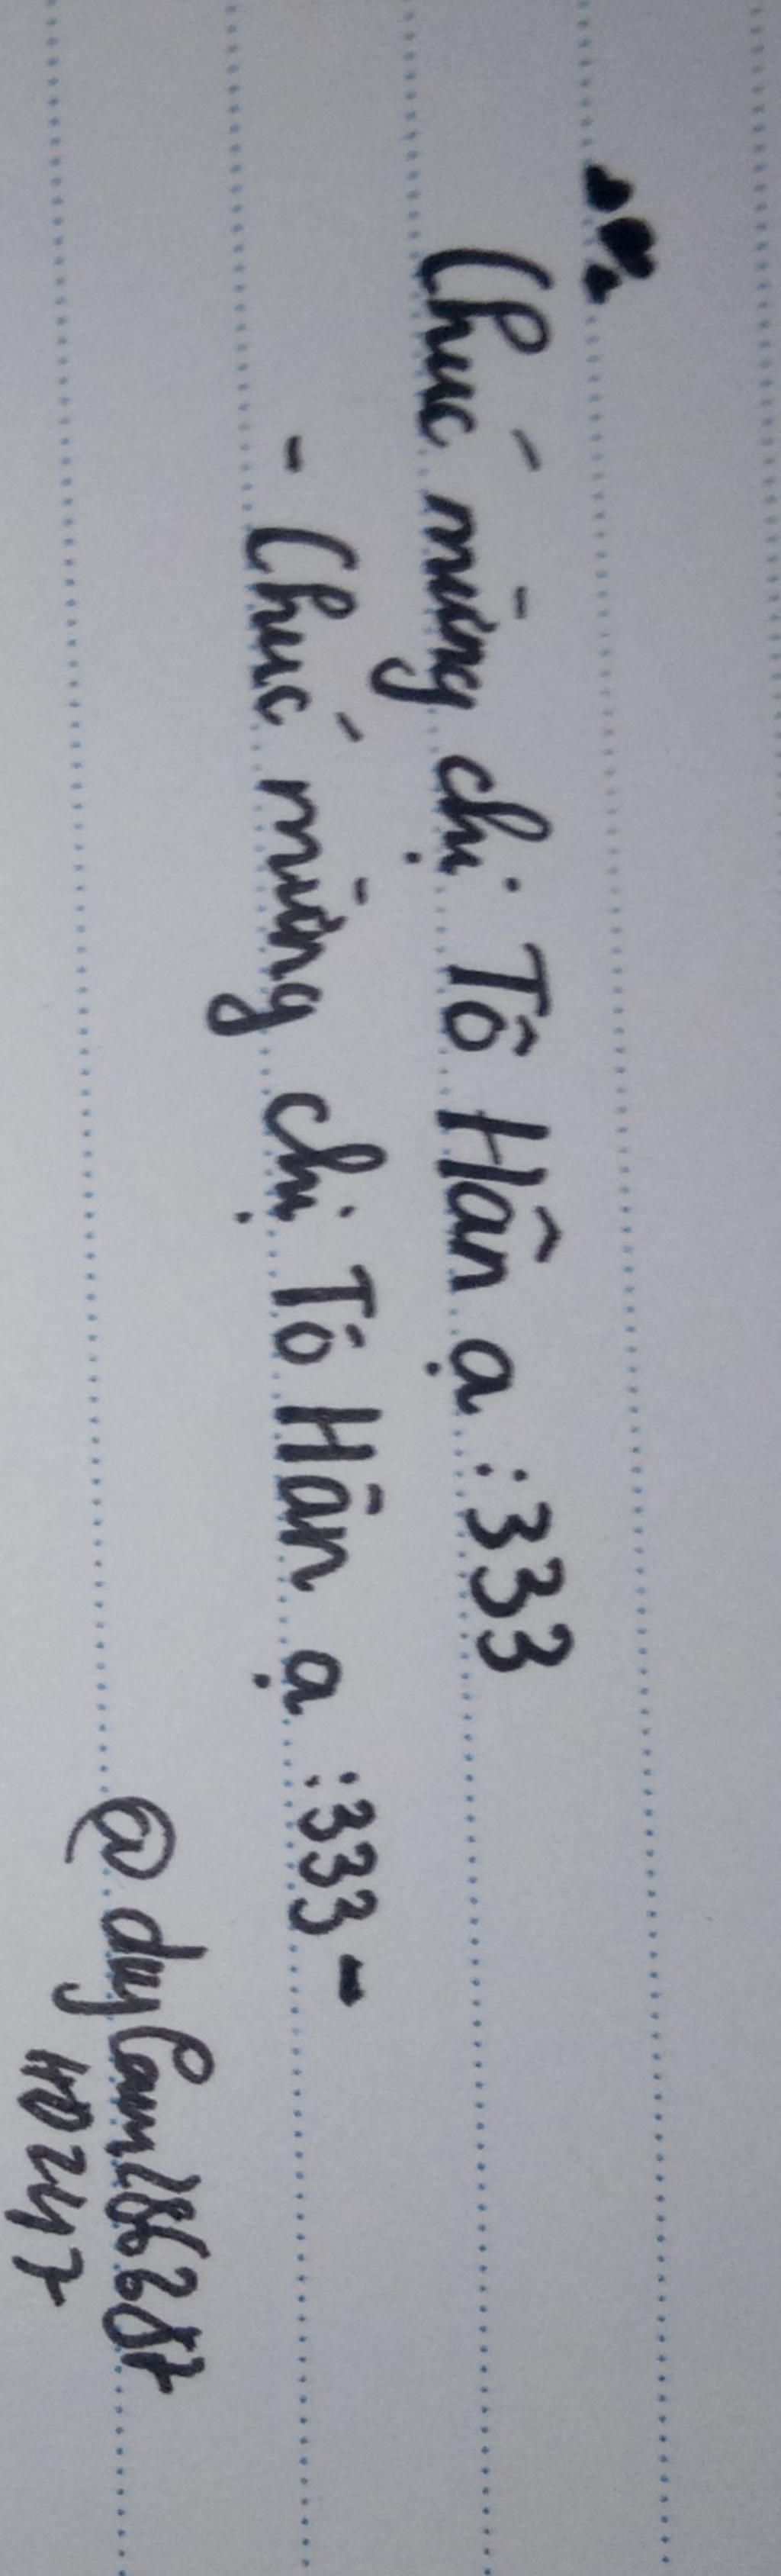 Chúc mừng chị Tô Hân ạ :333
- Chúc mừng chị Tô Hân ạ :333 -